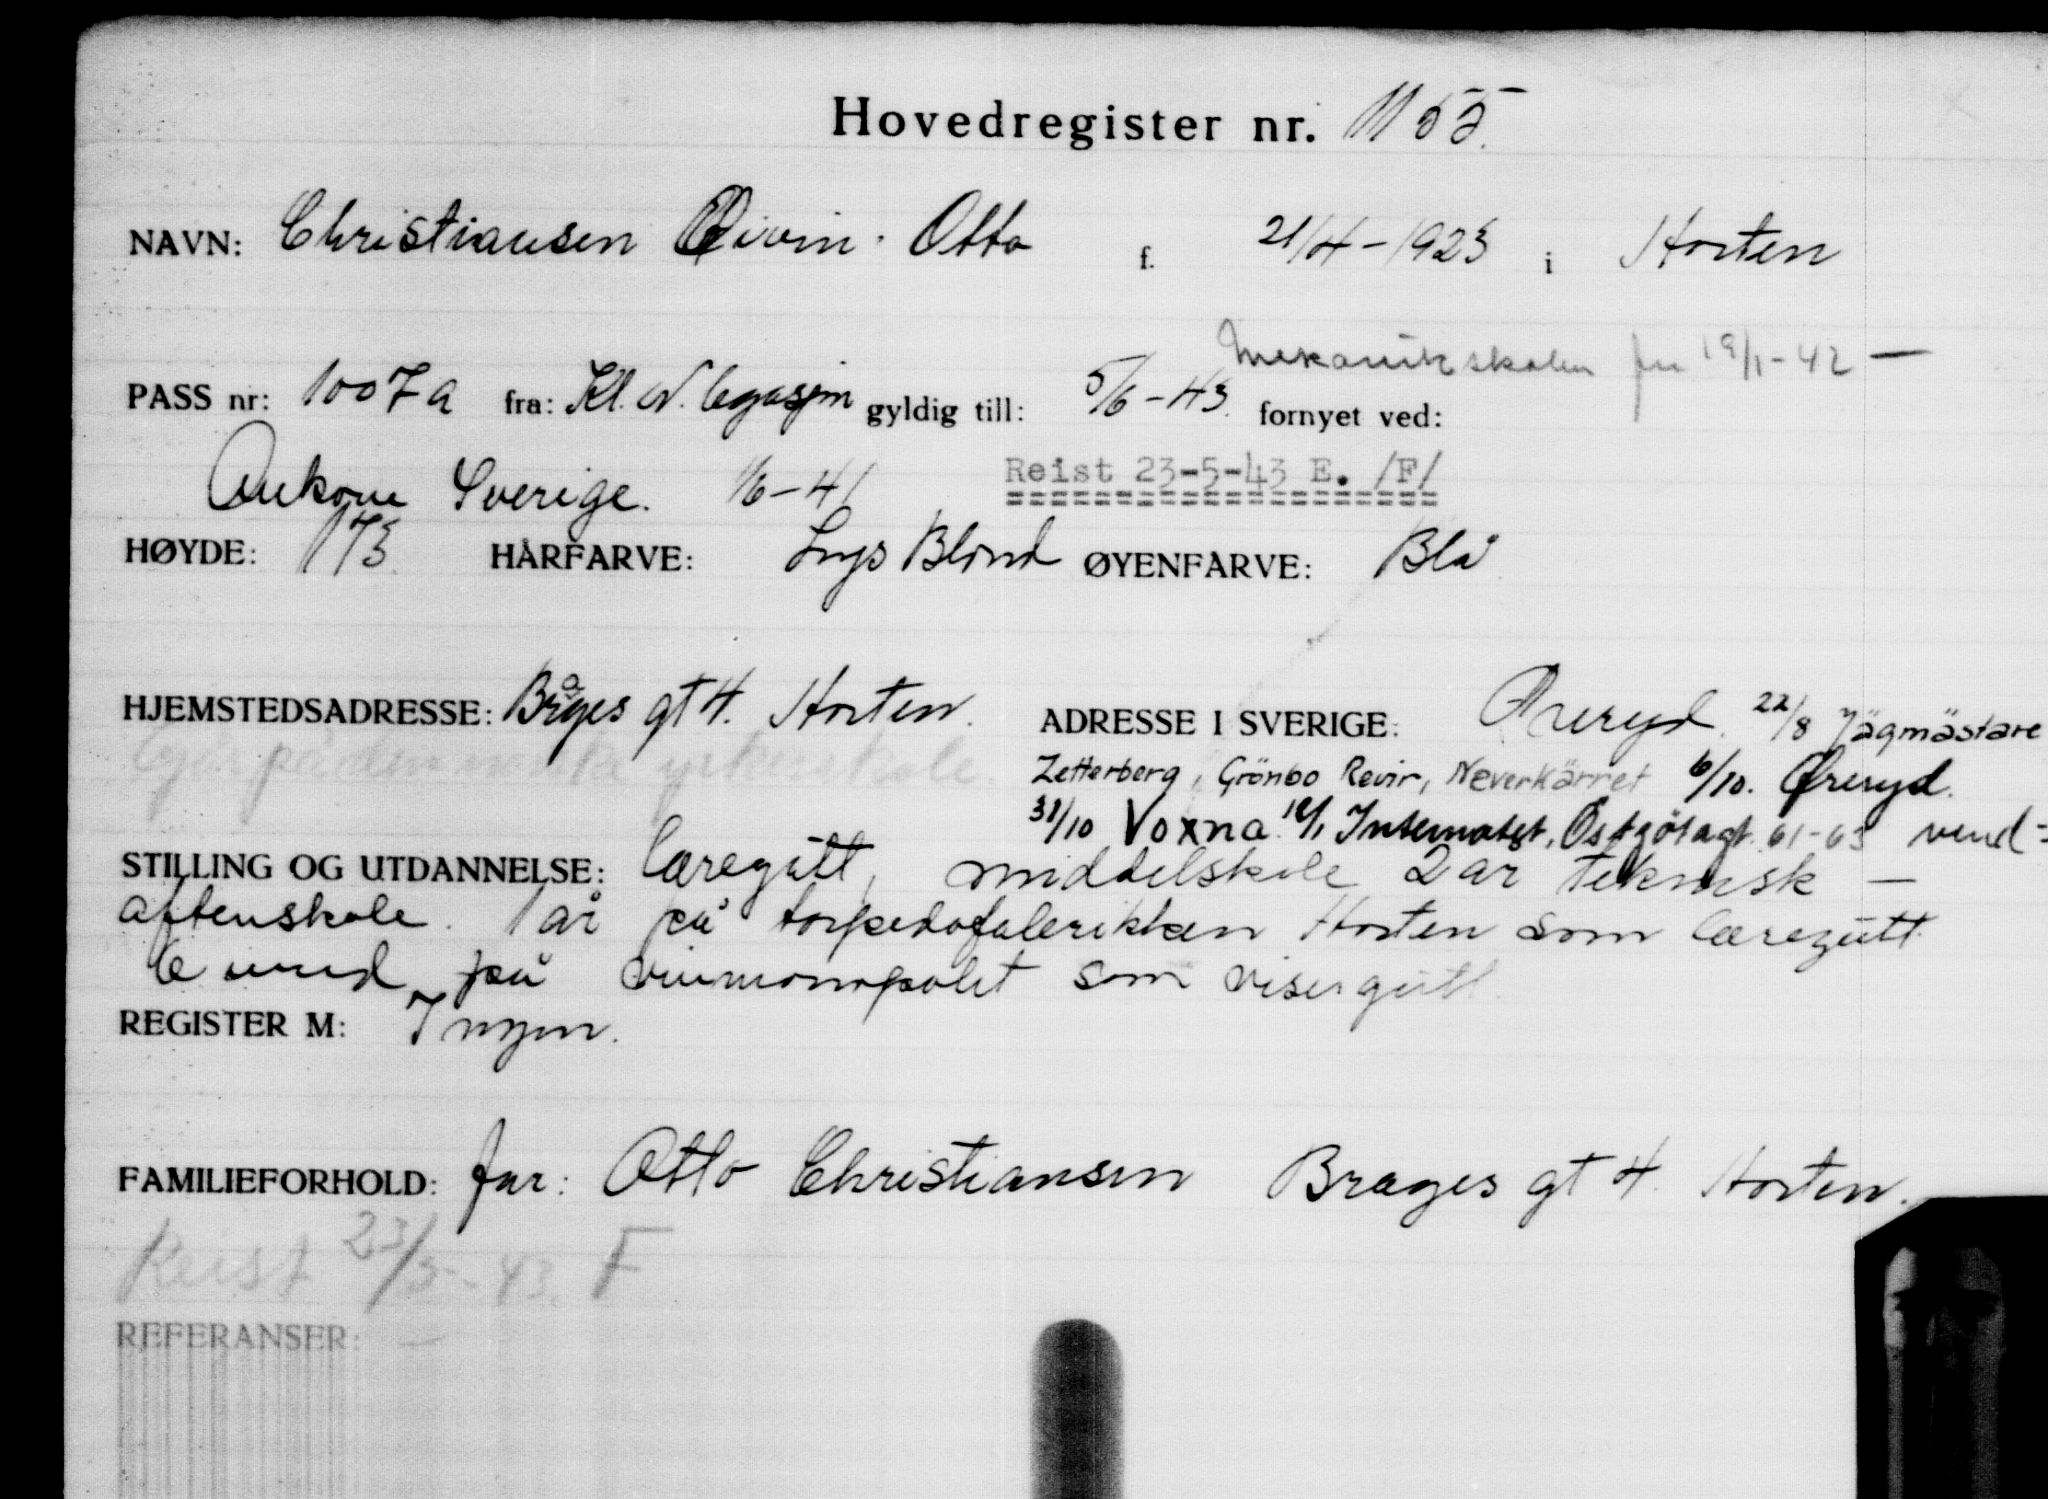 Hovedregister nr. 1155.
NAVN: Christiansen Øivin Otto f. 21/4-1923 i Horten
Mekanikskolen fra 19/1-42 —
PASS nr: 1007a fra: Kl. N. legasjon gyldig till: 5/6-43. fornyet ved:
Ankom Sverige. 1/6-41 Reist 23-5-43 E. /F/
HØYDE: 173 HÅRFARVE: Lys Blond ØYENFARVE: Blå
HJEMSTEDSADRESSE: Brages gt 4. Horten. ADRESSE I SVERIGE: Øreryd 22/8 Jägmästare
Zetterberg, Grönbo Revir, Neverkärret 6/10. Øreryd.
31/10 Voxna. Internatet, Östgötagt. 61-63 vend-
STILLING OG UTDANNELSE: læregutt, middelskole 2 år teknisk —
aftenskole. 1 år på torpedofabrikken Horten som læregutt
6 mnd på vinmonopolet som visergutt
REGISTER M: Ingen.
FAMILIEFORHOLD: far: Otto Christiansen Brages gt 4. Horten.
Reist 23/5-43. F
REFERANSER: —